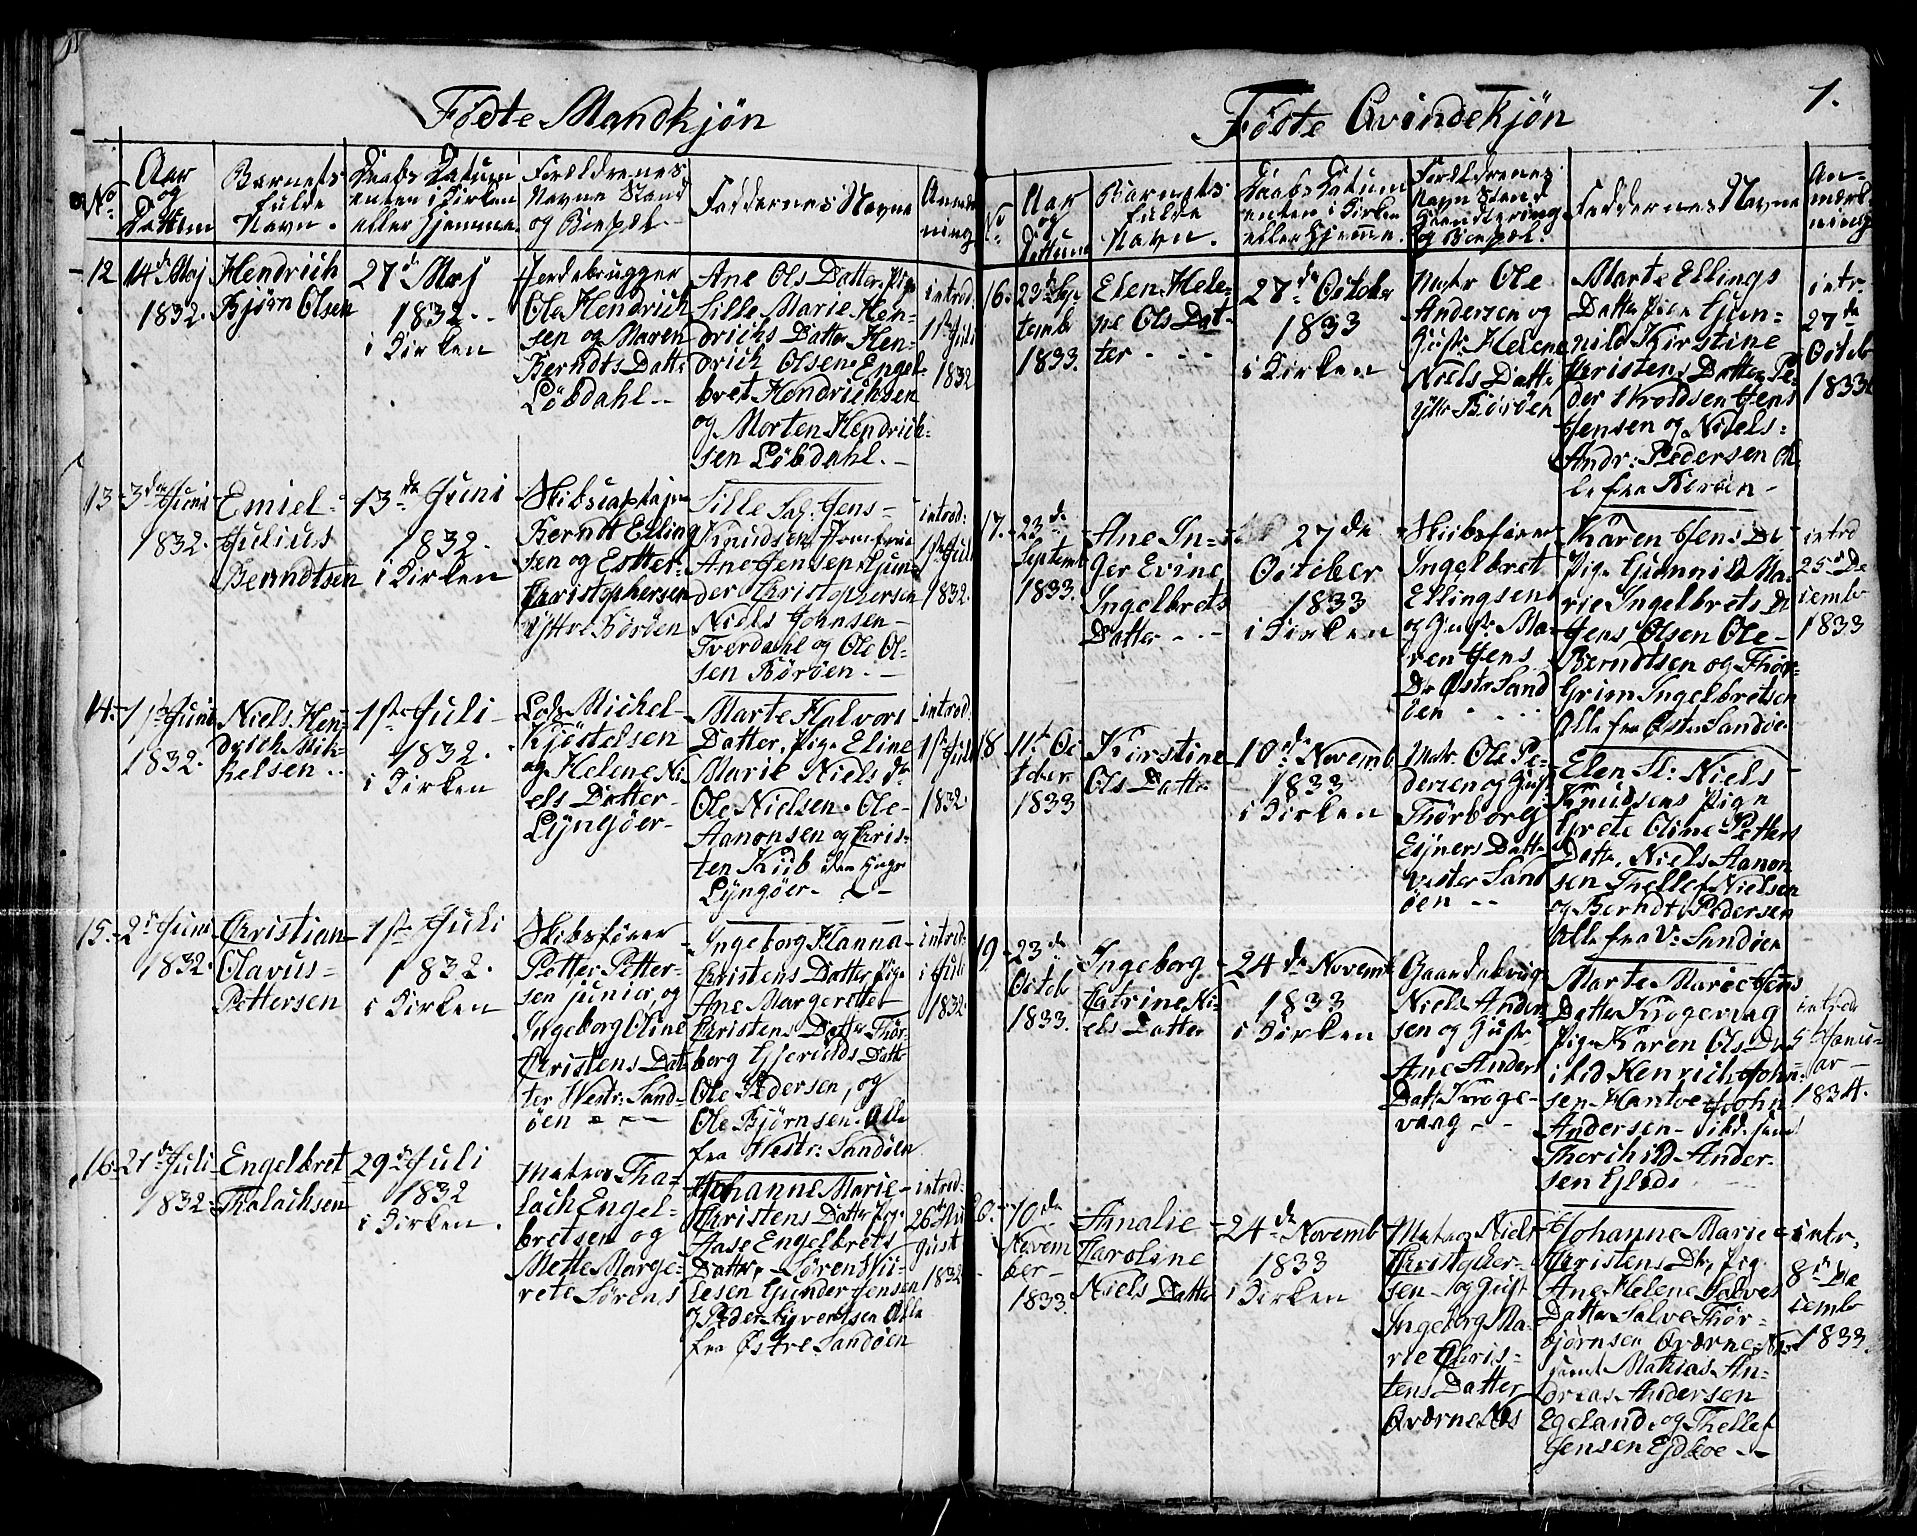 Fødte Mandkjøn
No.
Aar
og
Dattum
Barnets
fulde
Navn.
Daabs Datum
enten i Kirken
eller Hjemme
Forældrenes
Navne Stand
og Bopæl.
Faddernes Navne
Anmær
ning
12
14de Maj
1832.
Hendrich
Bjørn Olsen
27de Maj
1832.
i Kirken
Ole Hendrich
sen og Maren
Berndts Datt.
Løbdahl.
Ane Ols Datter, Pige
Sille Marie Hen-
drichs Datter Hen-
drich Olsen Engel-
bret Hendrichsen
og Morten Hendrich-
sen Løbdahl.
introd.
1ste Juli
1832
13
3de Juni
1832.
Emiel
Julius
Berndtsen
13de Juni
1832.
i Kirken
Skibscaptajn
Berndt Elling
sen og Ester
Christophersen
Yttre Borøen
Sille Sal. Jens
Knudsen, Jomfrue
Ane Jensen, Gun-
der Christophersen
Niels Johnsen
Tverdahl og Ole Ol-
sen Børøen.
introd.
1ste Juli
1832.
14.
1ste Juni
1832.
Niels Hen-
drich Mik-
kelsen
1ste Juli
1832.
i Kirken
Lods Michel
Kjøstelsen
og Helene Ni
els Datter
Lyngøer
Marte Halvors
Datter, Pige Eline
Marie Niels Dr
Ole Nielsen. Ole
Aanonsen og Chris-
ten Kub
Lyngøer
introd.
1ste Juli
1832.
15.
2de Juni
1832.
Christian
Olavus
Pettersen
1ste Juli
1832.
i Kirken
Skibsfører
Petter Petter-
sen junior, og
Ingeborg Oline
Christens Dat
ter Westr. Sand-
øen
Ingeborg Hanna
Christens Datter, Pige
Ane Margerethe
Christens Datter Thor-
borg Gjeruldds Datter
Ole Pedersen, og
Ole Bjørnsen. Alle
fra Westr. Sandøen
introd.
1 Juli
1832
16
21de Juli
1832.
Engelbret
Thalachsen
29de Juli
1832
i Kirken.
Matros Tha-
lach Engel-
bretsen og
Mette Marge-
rete Sørens
Johanne Marie
Christens Datter Pige
Aase Engelbrets
Datter, Søren
Gunder Jensen
Peder Syvertsen Alle
fra Østre Sandøen
introd.
26de Au
gust
1832
Fødte Qvindekjøn
1.
No
Aar
og
Dattum
Barnets
fulde
Navn.
Daabs Datum
enten i Kirken
eller Hjemme.
Forældrenes
Navn Stand
Haandtering
og Bopæl.
Faddernes Navne
An-
mærk-
ning
16.
23de Sep
temb
1833.
Elen Hele-
ne Ols Dat-
ter
27de October
1833
i Kirken
Matr Ole
Andersen og
Hustr Helene
Niels Datter
Yttr Børøen
Marte Ellings
Datter Pige Gun-
nild Kirstine
Christens Datter, Pe-
der Skroldsen Jens
Jensen og Niels
Andr: Pedersen Al-
le fra Børøen
intr.
27de
Octob
1833
17.
23de
Septemb
1833.
Ane In-
ger Evine
Ingelbrets
Datter
27de
October
1833
i Kirken
Skibsfører
Ingelbret
Ellingsen
og Hustr. Ma-
ren Jens
Dr Øster Sand
øen
Karen Jens Dr
Pige Gunnild Ma-
rie Ingelbrets Dr
Jens Olsen Ole
Berndtsen og Thor-
Grim Ingelbretsen
Alle fra Øster Sandøen
introd
25de De
cemb
1833
18
11te Oc
tober
1833
Kirstine
Ols Datter
10de Novemb
1833
i Kirken
Matr. Ole Pe-
dersen og Hustr
Thorborg
Ejners Datter
Vester Sand
øen
Elen Sl: Niels
Knudsens Pige
Grete Oline Petters
Datter, Niels Aanon
sen Thellef Nielsen
og Berndt Pedersen
Alle fra V: Sandøen
19.
23de
Octob
1833.
Ingeborg
Catrine Ni-
els Datter
24de Novemb
1833
i Kirken
Niels Ander
sen og Hustr
Ane Anders
Datt Kroge-
vaag
Marte Marie Jens
Datter Krogevaag
Pige Karen Ols Dr
ibid Henrich John-
sen Hantoe John
Andersen ibid. samt
Thorchild Ander-
sen Gjeds
introd
5 Janu-
ar
1834.
20.
10de
Novem
ber
1833.
Amalie
Caroline
Niels Datter
24de Novemb
1833
i Kirken
Matros Niels
Christopher-
sen og Hustr
Ingeborg Ma-
rie Chris-
tens Datter
Qværnenes
Johanne Marie
Christens Dr, Pig.
Ane Helene Salves
Datter Salve Thor-
bjørnsen Qværnenes
samt Mathias An-
dreas Andersen
Egeland og Thellef
Jensen
intr.
8de De
cemb
1833.